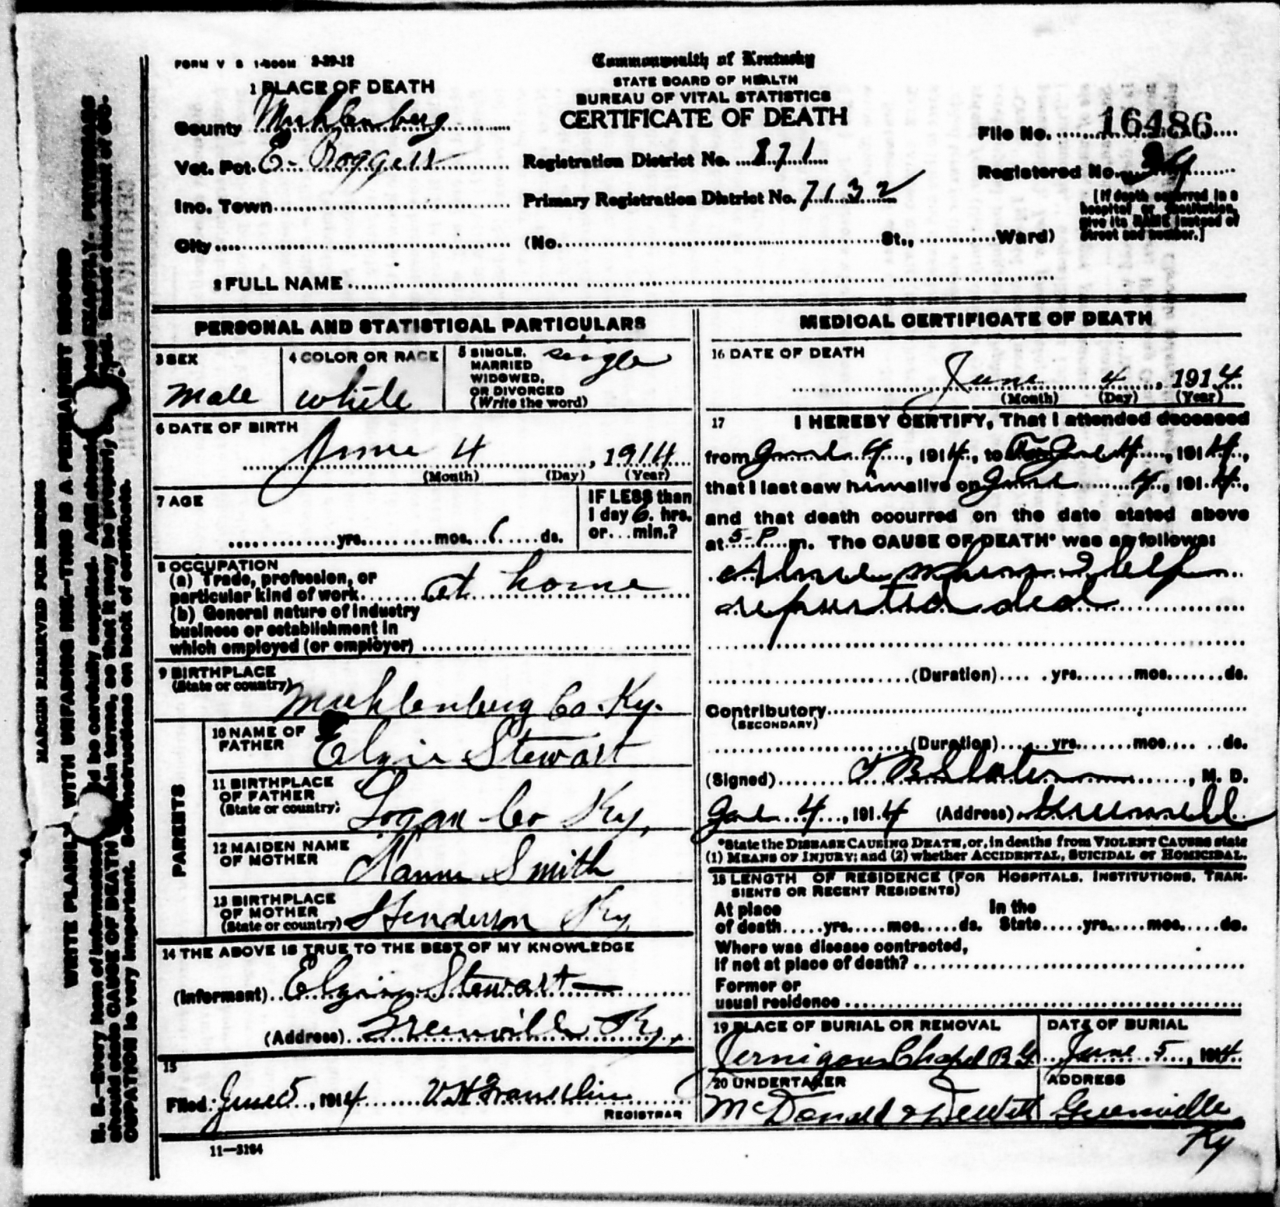 FORM V S 1-500M 2-29-12
Commonwealth of Kentucky
STATE BOARD OF HEALTH
BUREAU OF VITAL STATISTICS
CERTIFICATE OF DEATH
1 PLACE OF DEATH
County Muhlenberg
Vot. Pct. E.
Inc. Town
City
Registration District No. 871
Primary Registration District No. 7132
(No. St., Ward)
File No. 16486
Registered No.
[If death occurred in a
hospital or institution,
give its NAME instead of
street and number.]
2 FULL NAME
PERSONAL AND STATISTICAL PARTICULARS
3 SEX
male
4 COLOR OR RACE
white
5 SINGLE,
MARRIED
WIDOWED,
OR DIVORCED
(Write the word)
single
6 DATE OF BIRTH
June 4, 1914
(Month) (Day) (Year)
7 AGE
yrs. mos. 6 ds.
IF LESS than
1 day 6 hrs.
or min.?
8 OCCUPATION
(a) Trade, profession, or
particular kind of work at home
(b) General nature of industry
business or establishment in
which employed (or employer)
9 BIRTHPLACE
(State or country)
Muhlenberg Co. Ky.
PARENTS
10 NAME OF
FATHER
Elgie Stewart
11 BIRTHPLACE
OF FATHER
(State or country)
Logan Co Ky,
12 MAIDEN NAME
OF MOTHER
Smith
13 BIRTHPLACE
OF MOTHER
(State or country)
Henderson Ky
14 THE ABOVE IS TRUE TO THE BEST OF MY KNOWLEDGE
(Informant) Elgie Stewart
(Address) Greenville Ky,
15
Filed June 5, 1914
REGISTRAR
11—3184
MEDICAL CERTIFICATE OF DEATH
16 DATE OF DEATH
June 4, 1914
(Month) (Day) (Year)
17 I HEREBY CERTIFY, That I attended deceased
from 4, 1914, to 4, 1914,
that I last saw him alive on 4, 1914,
and that death occurred on the date stated above
at 5-P m. The CAUSE OF DEATH* was as follows:
(Duration) yrs. mos. ds.
Contributory
(SECONDARY)
(Duration) yrs. mos. ds.
(Signed) Slaton, M. D.
4, 1914 (Address)
*State the DISEASE CAUSING DEATH, or, in deaths from VIOLENT CAUSES state
(1) MEANS OF INJURY; and (2) whether ACCIDENTAL, SUICIDAL or HOMICIDAL.
18 LENGTH OF RESIDENCE (FOR HOSPITALS, INSTITUTIONS, TRAN-
SIENTS OR RECENT RESIDENTS)
At place
of death yrs. mos. ds.
In the
State yrs. mos. ds.
Where was disease contracted,
If not at place of death?
Former or
usual residence
19 PLACE OF BURIAL OR REMOVAL
Jernigans Chapel B G
DATE OF BURIAL
June 5, 1914
20 UNDERTAKER
McDonald & Dewitt
ADDRESS
Greenville
Ky
MARGIN RESERVED FOR BINDING
WRITE PLAINLY WITH UNFADING INK—THIS IS A PERMANENT RECORD